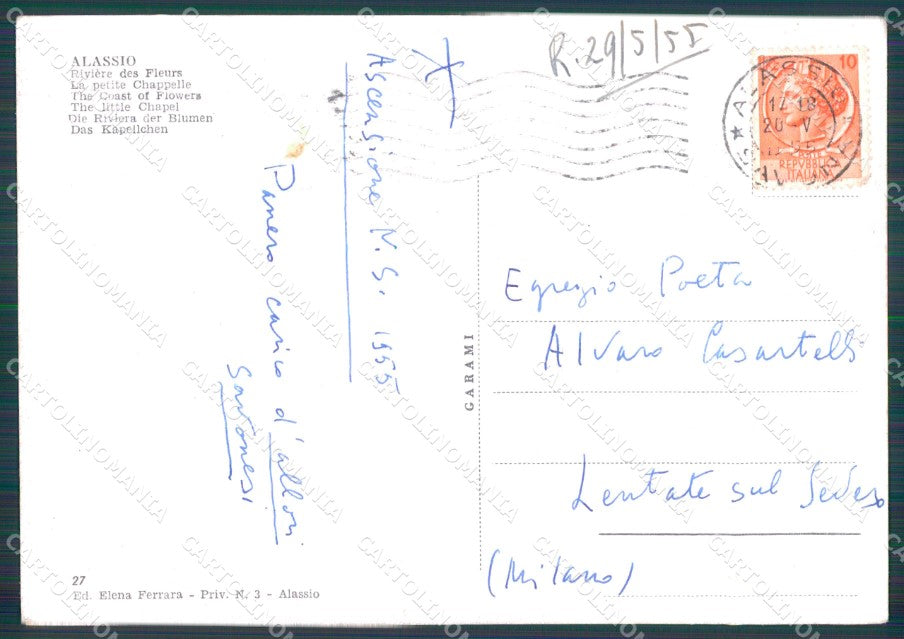 ALASSIO
Rivière des Fleurs
La petite Chappelle
The Coast of Flowers
The little Chapel
Die Riviera der Blumen
Das Kapellchen
R. 29/5/55
10
ALASSIO
17-18
20 V
REPUBBLICA
ITALIANA
Ascensione N. S. 1955
Panero carico d'allori
Savonesi
GARAMI
Egregio Poeta
Alvaro Casartelli
Lentate sul Seveso
(Milano)
27
Ed. Elena Ferrara - Priv. N. 3 - Alassio
CARTOLINOMANIA